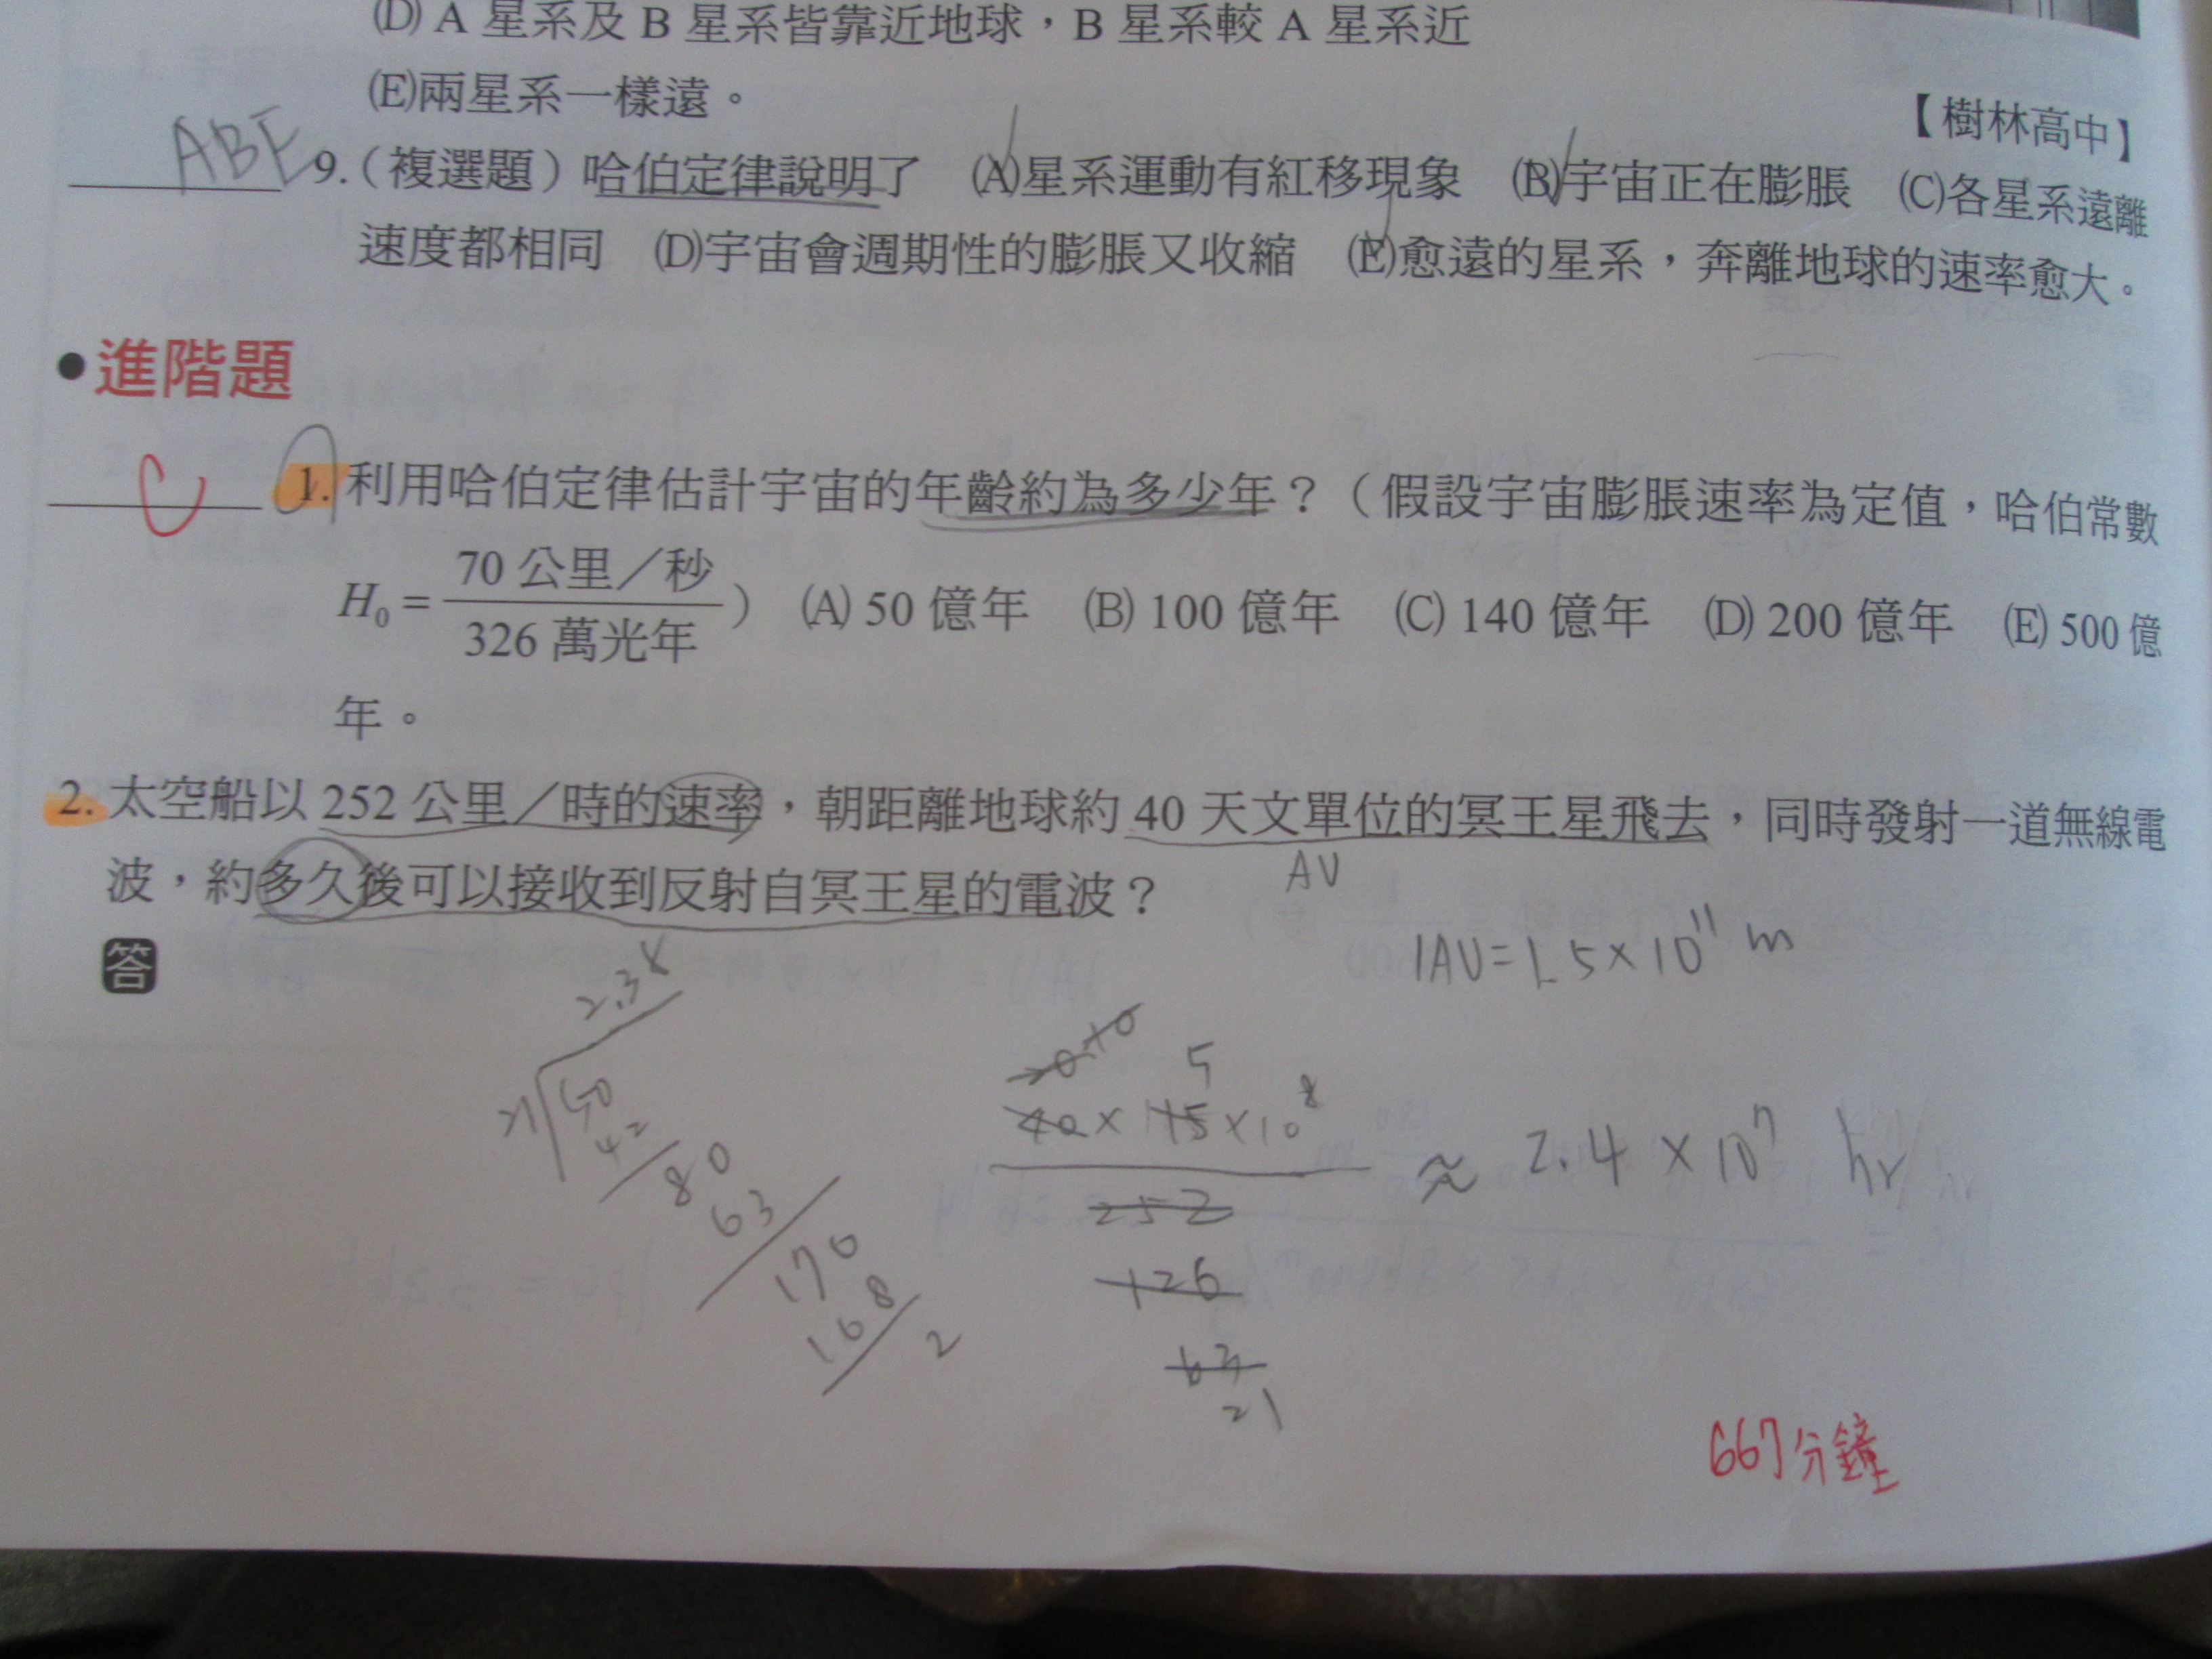 (D) A 星系及 B 星系皆靠近地球，B 星系較 A 星系近
(E)兩星系一樣遠。
【樹林高中】
ABE 9.（複選題）哈伯定律說明了 (A)星系運動有紅移現象 (B)宇宙正在膨脹 (C)各星系遠離
速度都相同 (D)宇宙會週期性的膨脹又收縮 (E)愈遠的星系，奔離地球的速率愈大。
•進階題
C 1. 利用哈伯定律估計宇宙的年齡約為多少年？（假設宇宙膨脹速率為定值，哈伯常數
70 公里／秒
H₀ = ） (A) 50 億年 (B) 100 億年 (C) 140 億年 (D) 200 億年 (E) 500 億
326 萬光年
年。
2. 太空船以 252 公里／時的速率，朝距離地球約 40 天文單位的冥王星飛去，同時發射一道無線電
波，約多久後可以接收到反射自冥王星的電波？
AU
答
1AU=1.5×10¹¹ m
2.38
21 50
42
80
63
170
168
2
20 10
5
40×1.5×10⁸
≈ 2.4×10⁷ hr
252
126
63
21
667分鐘